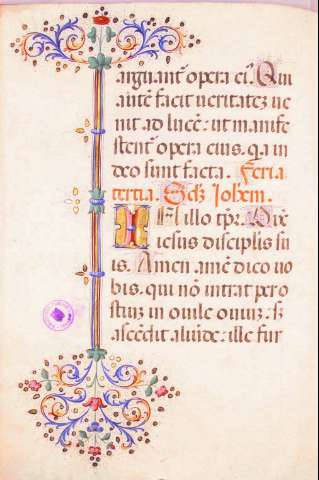 arguant̃ opera ei᷒. Qui
autē facit ueritateʒ ue
nit ad lucē: ut manife
stent̃ opera eius. q̇a in
deo sunt facta. Feria
tertia. Scḋʒ Iohem.
IN illo tp̄r. Dix̄
iesus discipl̄is su
is. Amen amē dico uo
bis. qui nō intrat per o
stiuʒ in ouile ouiuʒ: sʒ
ascēdit aliūde: ille fur